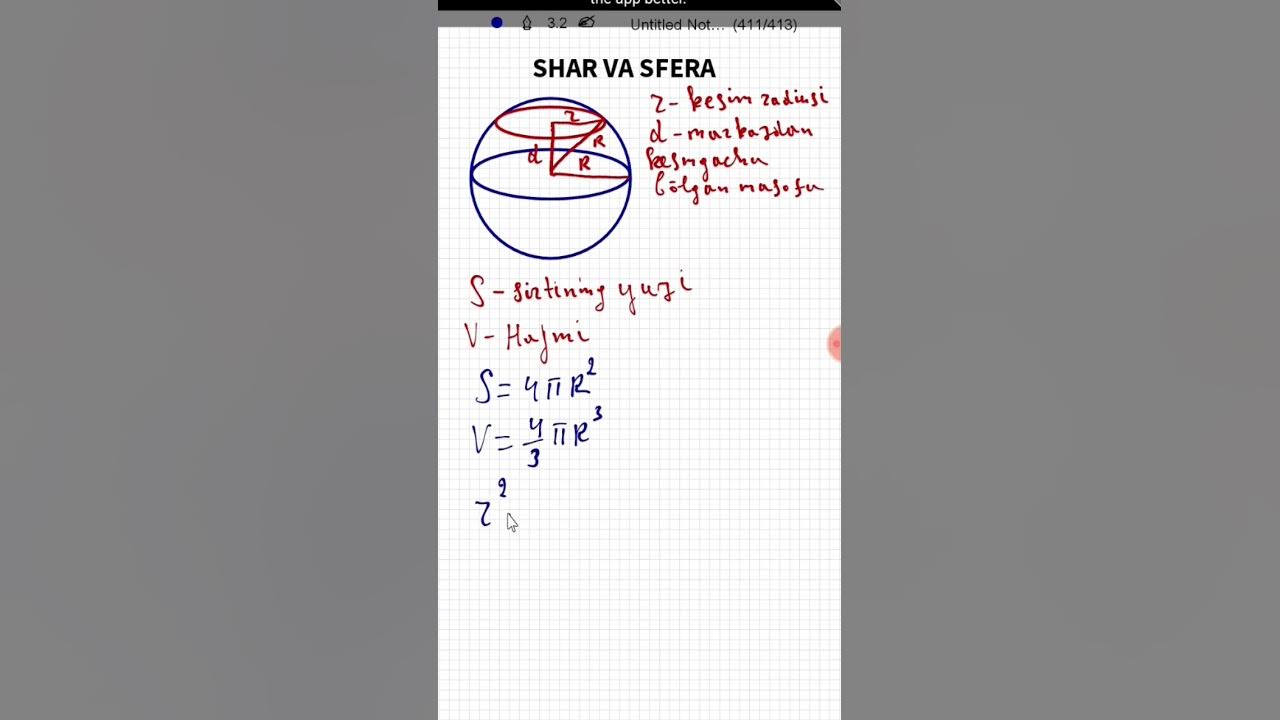 the app better.
3.2 Untitled Not... (411/413)
SHAR VA SFERA
r - kesim radiusi
d - markazdan
kesimgacha
bo'lgan masofa
r
d
R
R
S - sirtining yuzi
V - Hajmi
S = 4πR²
V = 4/3 πR³
r²